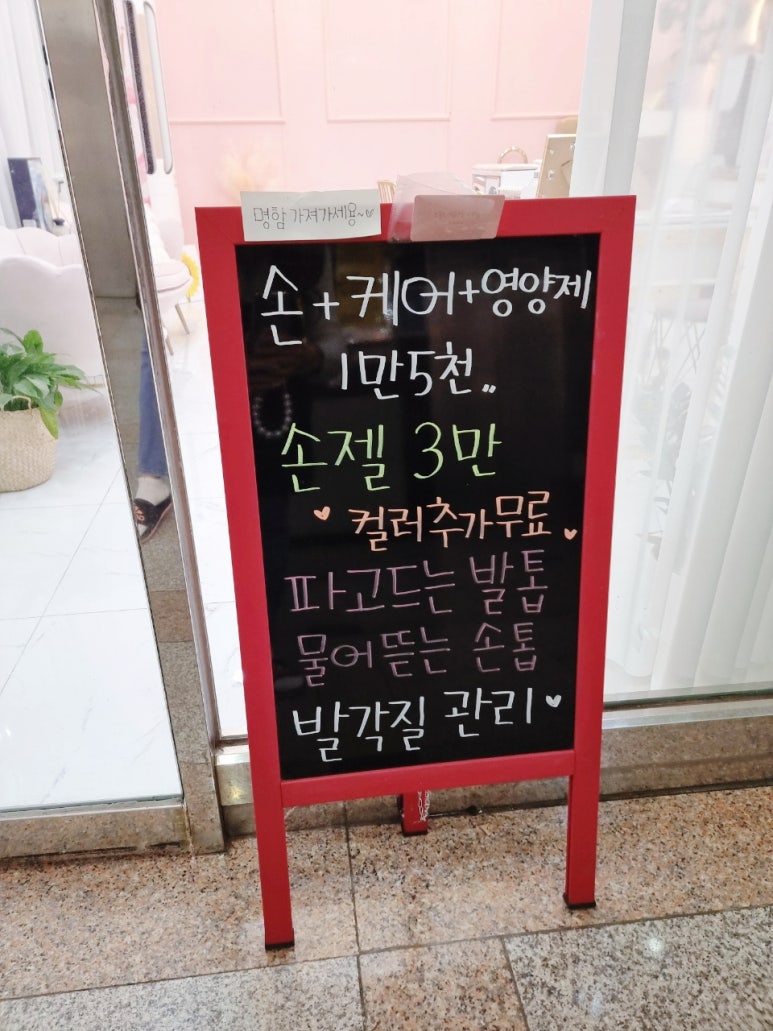 명함 가져가세용~♡
손+케어+영양제
1만5천..
손젤 3만
♥ 컬러추가무료 ♥
파고드는 발톱
물어뜯는 손톱
발각질 관리♥